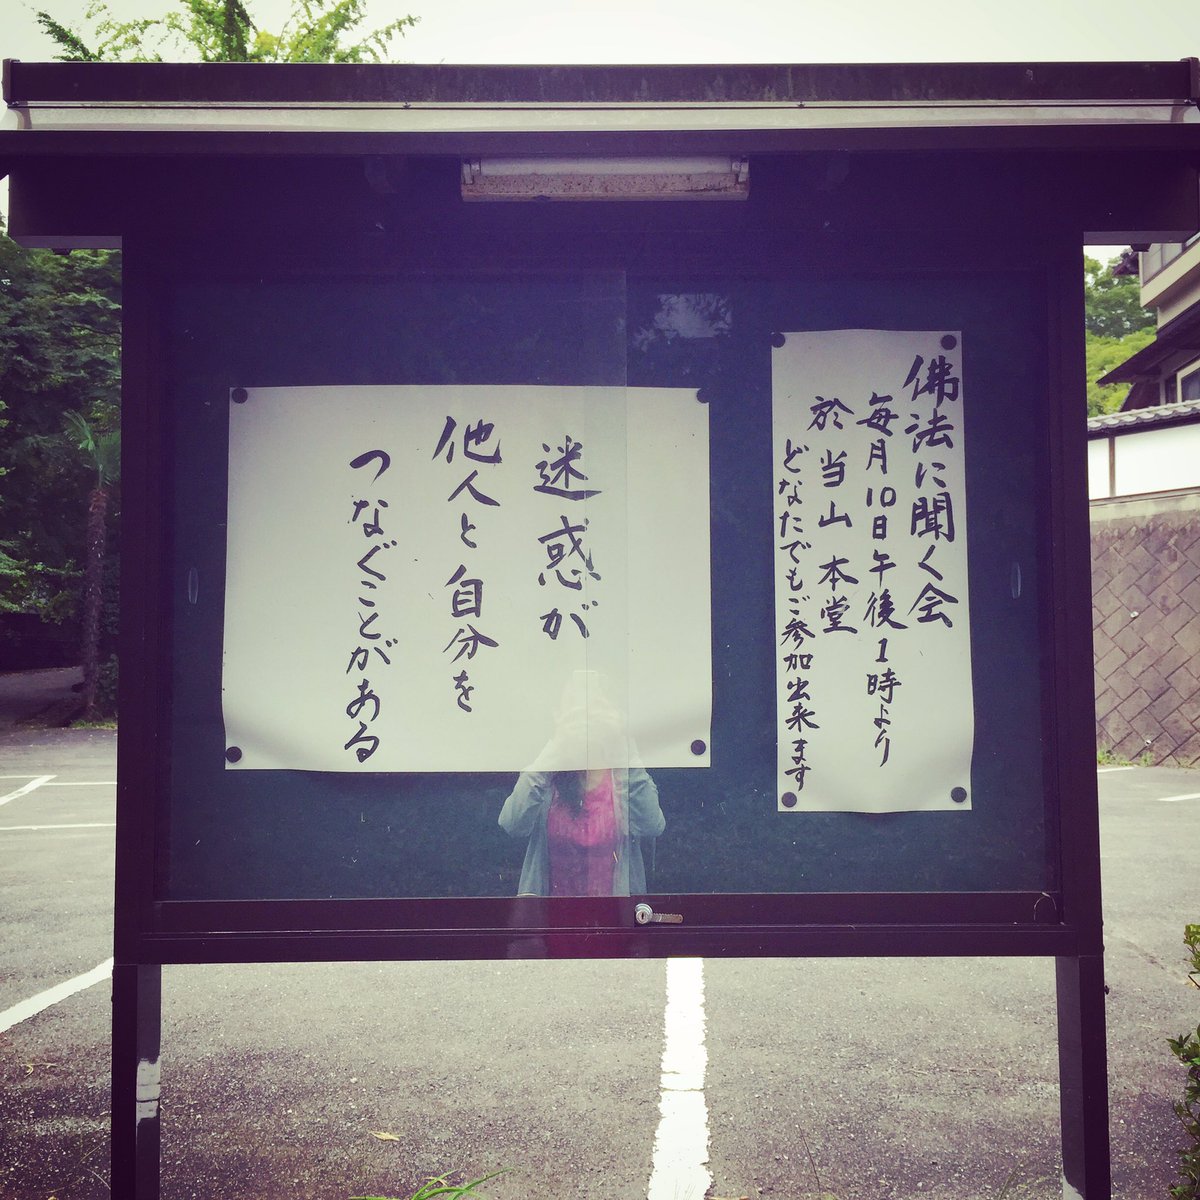 佛法に聞く会
毎月10日午後1時より
於当山本堂
どなたでもご参加出来ます
迷惑が
他人と自分を
つなぐことがある